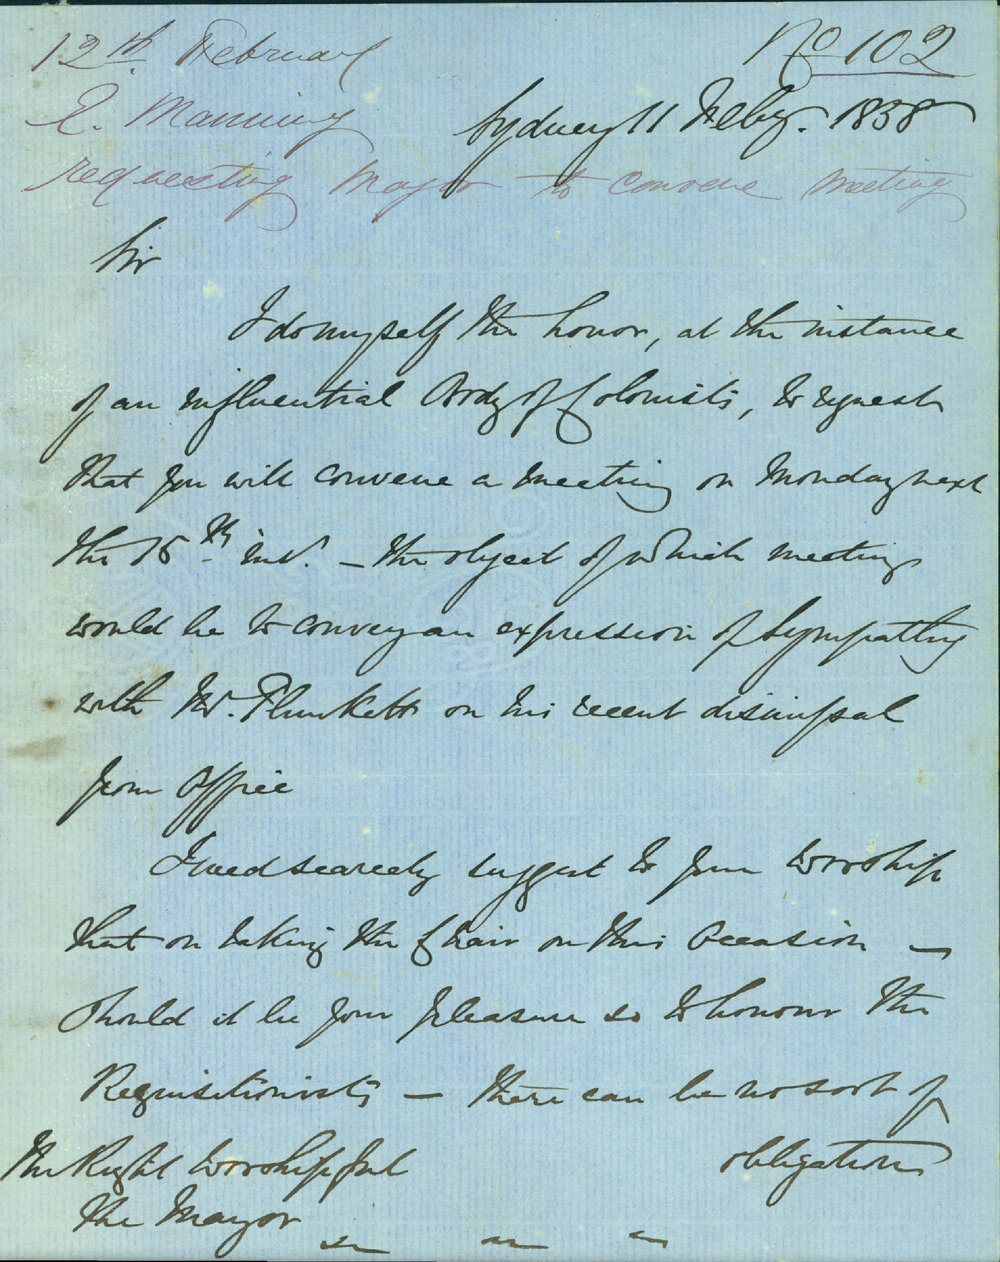 12th. Februar
No 102
E. Manning
Sydney 11 Feby. 1858
requesting Mayor to convene meeting
Sir
I do myself the honor, at the instance
of an influential Body of Colonists, to request
that you will convene a meeting on Monday next
the 15th. inst. — the object of which meeting
would be to convey an expression of Sympathy
with Mr. Plunkett on his recent dismissal
from Office
I need scarcely suggest to your Worship
that on taking the Chair on this Occasion —
should it be your pleasure so to honour the
Requisitionists — there can be no sort of
obligation
The Right Worshipful
The Mayor